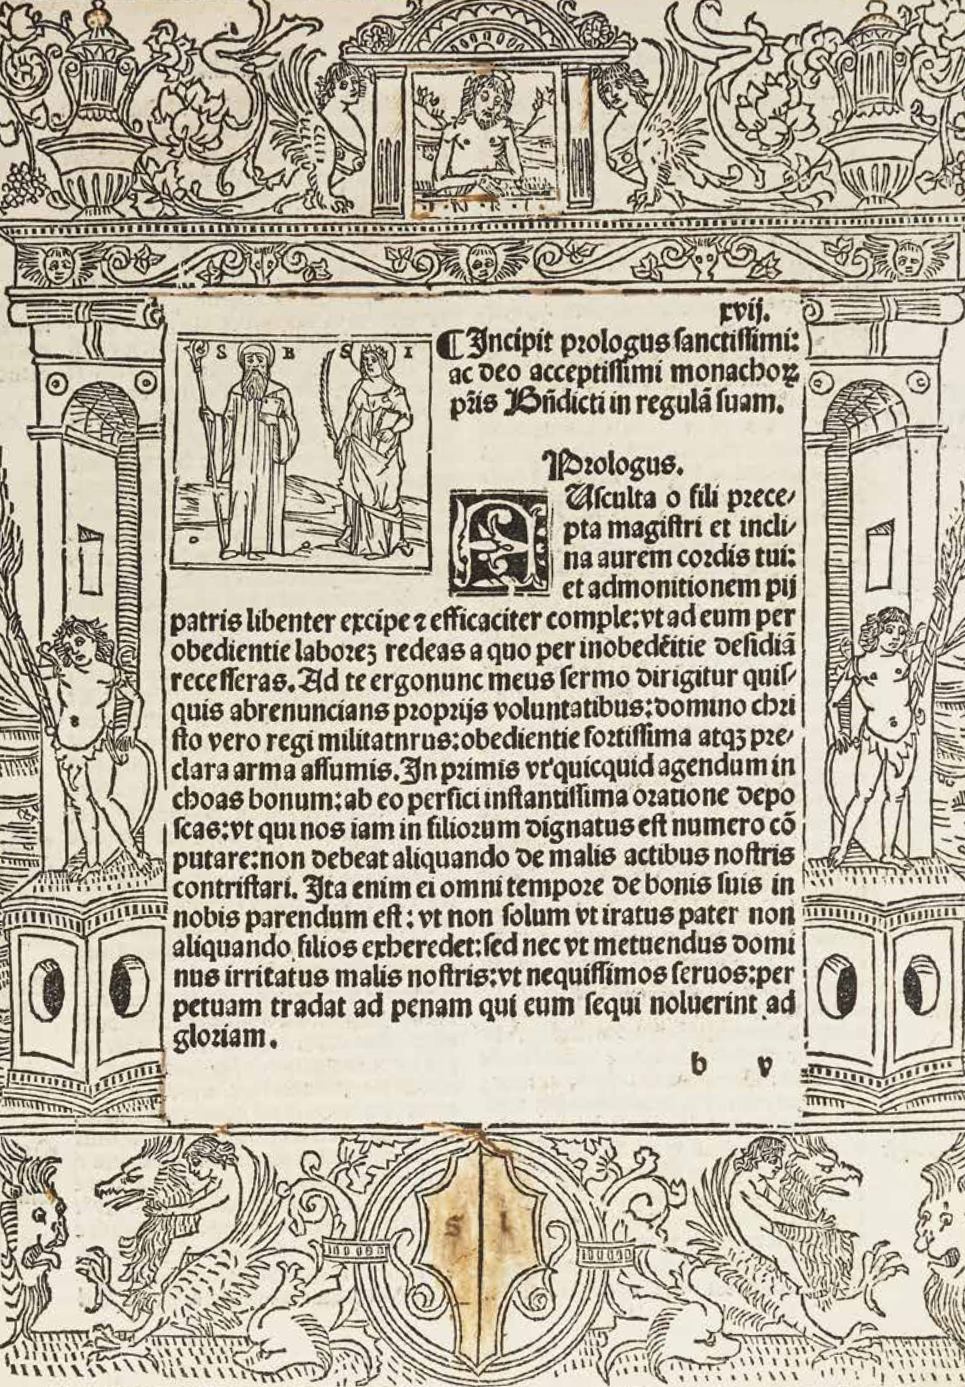 .N.R.I.
xvij.
S B S I
¶ Incipit prologus sanctissimi:
ac deo acceptissimi monachoꝝ
pr̃is Bñdicti in regulã suam.
Prologus.
AUsculta o fili prece/
pta magistri et incli/
na aurem cordis tui:
et admonitionem pij
patris libenter excipe ⁊ efficaciter comple: vt ad eum per
obedientie laboreȝ redeas a quo per inobedẽtie desidiã
recesseras. Ad te ergo nunc meus sermo dirigitur quis/
quis abrenuncians proprijs voluntatibus: domino chri
sto vero regi militatnrus: obedientie fortissima atqȝ pre/
clara arma assumis. In primis vt quicquid agendum in
choas bonum: ab eo perfici instantissima oratione depo
scas: vt qui nos iam in filiorum dignatus est numero cõ
putare: non debeat aliquando de malis actibus nostris
contristari. Ita enim ei omni tempore de bonis suis in
nobis parendum est: vt non solum vt iratus pater non
aliquando filios exheredet: sed nec vt metuendus domi
nus irritatus malis nostris: vt nequissimos seruos: per
petuam tradat ad penam qui eum sequi noluerint ad
gloriam.
b v
S L